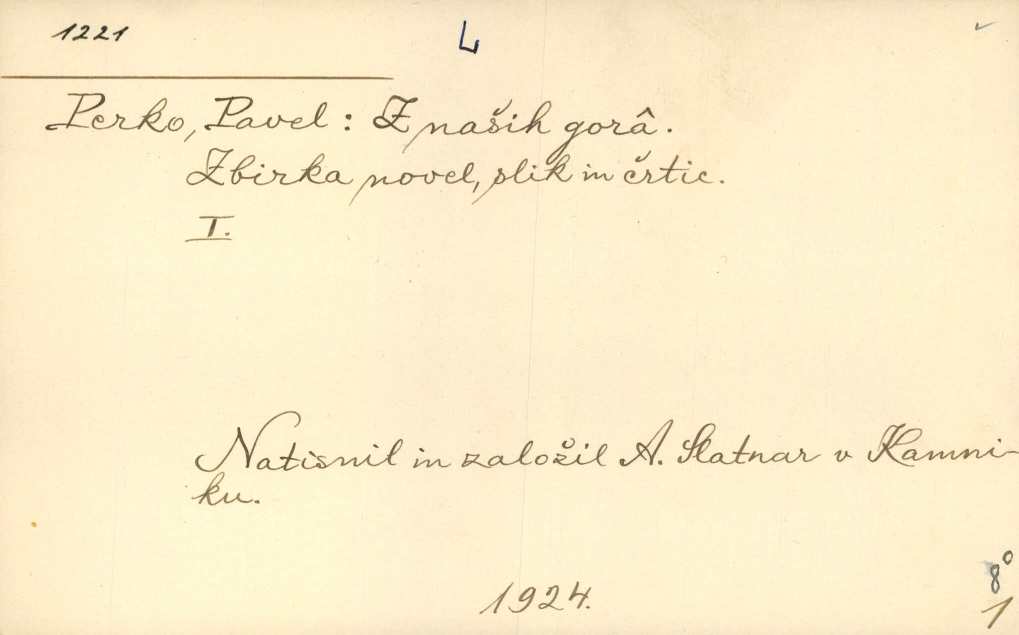 1221
L
Perko, Pavel: Z naših gorâ.
Zbirka novel, slik in črtic.
I.
Natisnil in založil A. Slatnar v Kamni-
ku.
8°
1924.
1